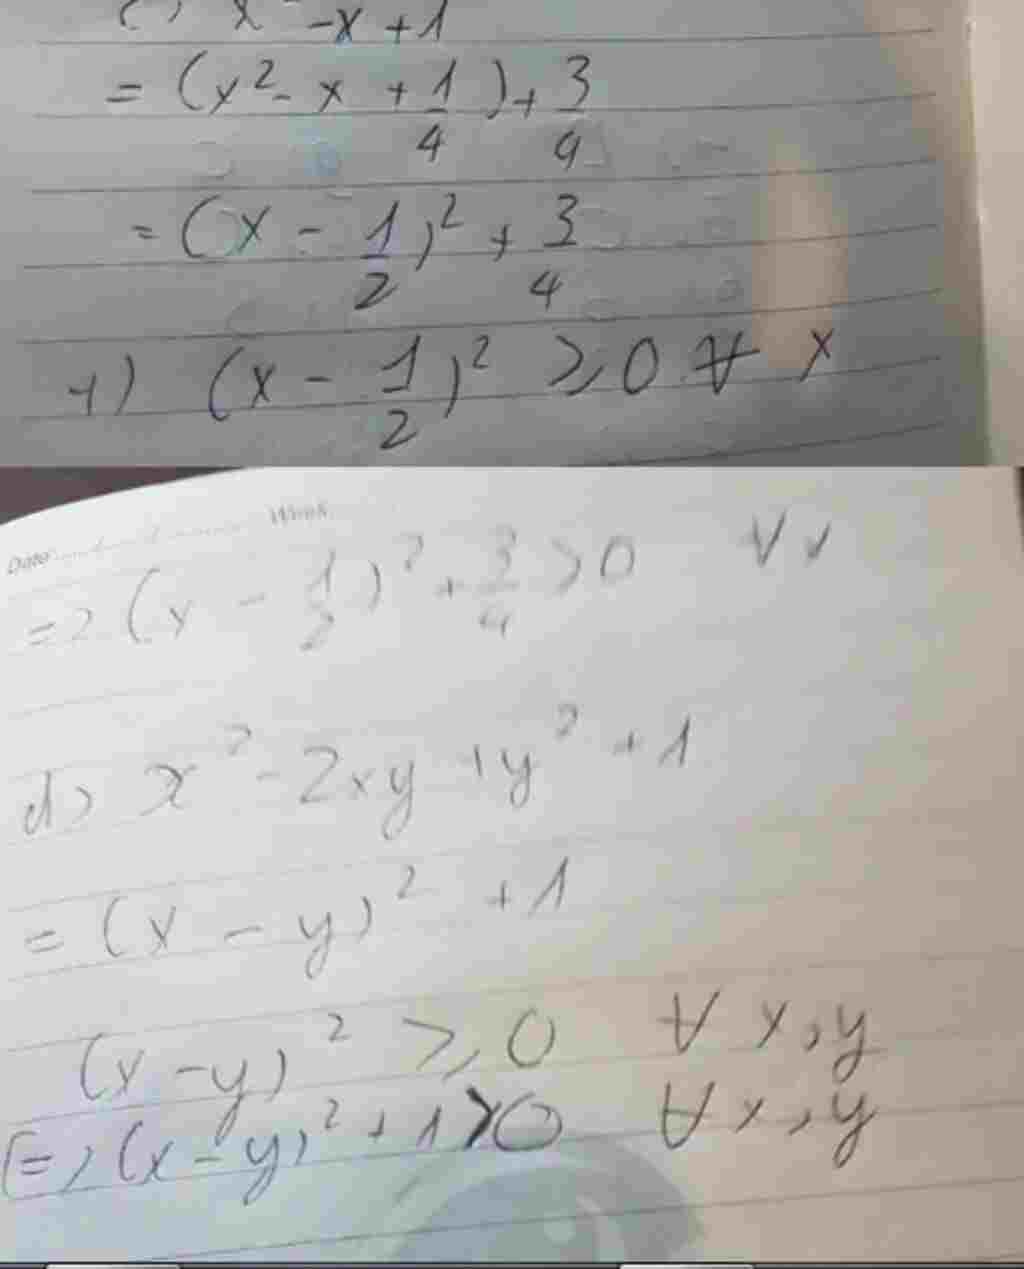 c) x² - x + 1
= (x² - x + 1/4) + 3/4
= (x - 1/2)² + 3/4
(x - 1/2)² ≥ 0 ∀ x
Date Week
=> (x - 1/2)² + 3/4 > 0 ∀ x
d) x² - 2xy + y² + 1
= (x - y)² + 1
(x - y)² ≥ 0 ∀ x, y
=> (x - y)² + 1 > 0 ∀ x, y